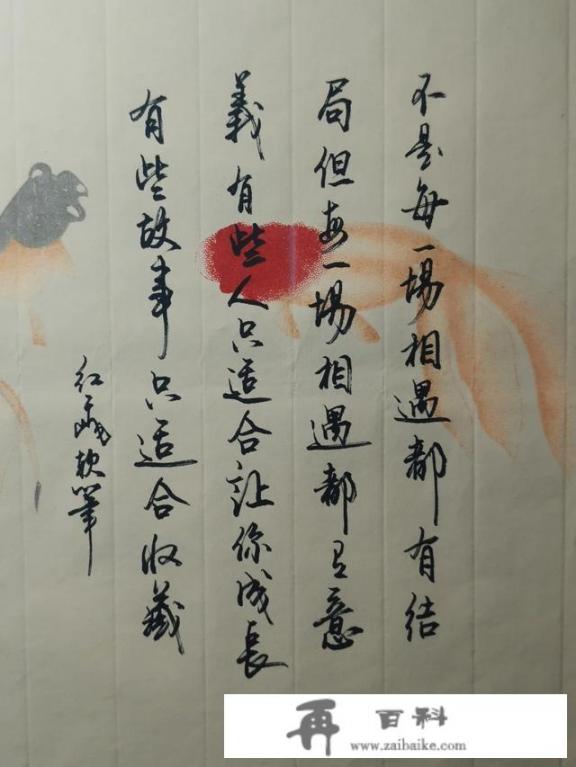 不是每一場相遇都有结
局但每一場相遇都有意
義有些人只适合让你成長
有些故事只适合收藏
软筆
再 百科
www.zaibaike.com